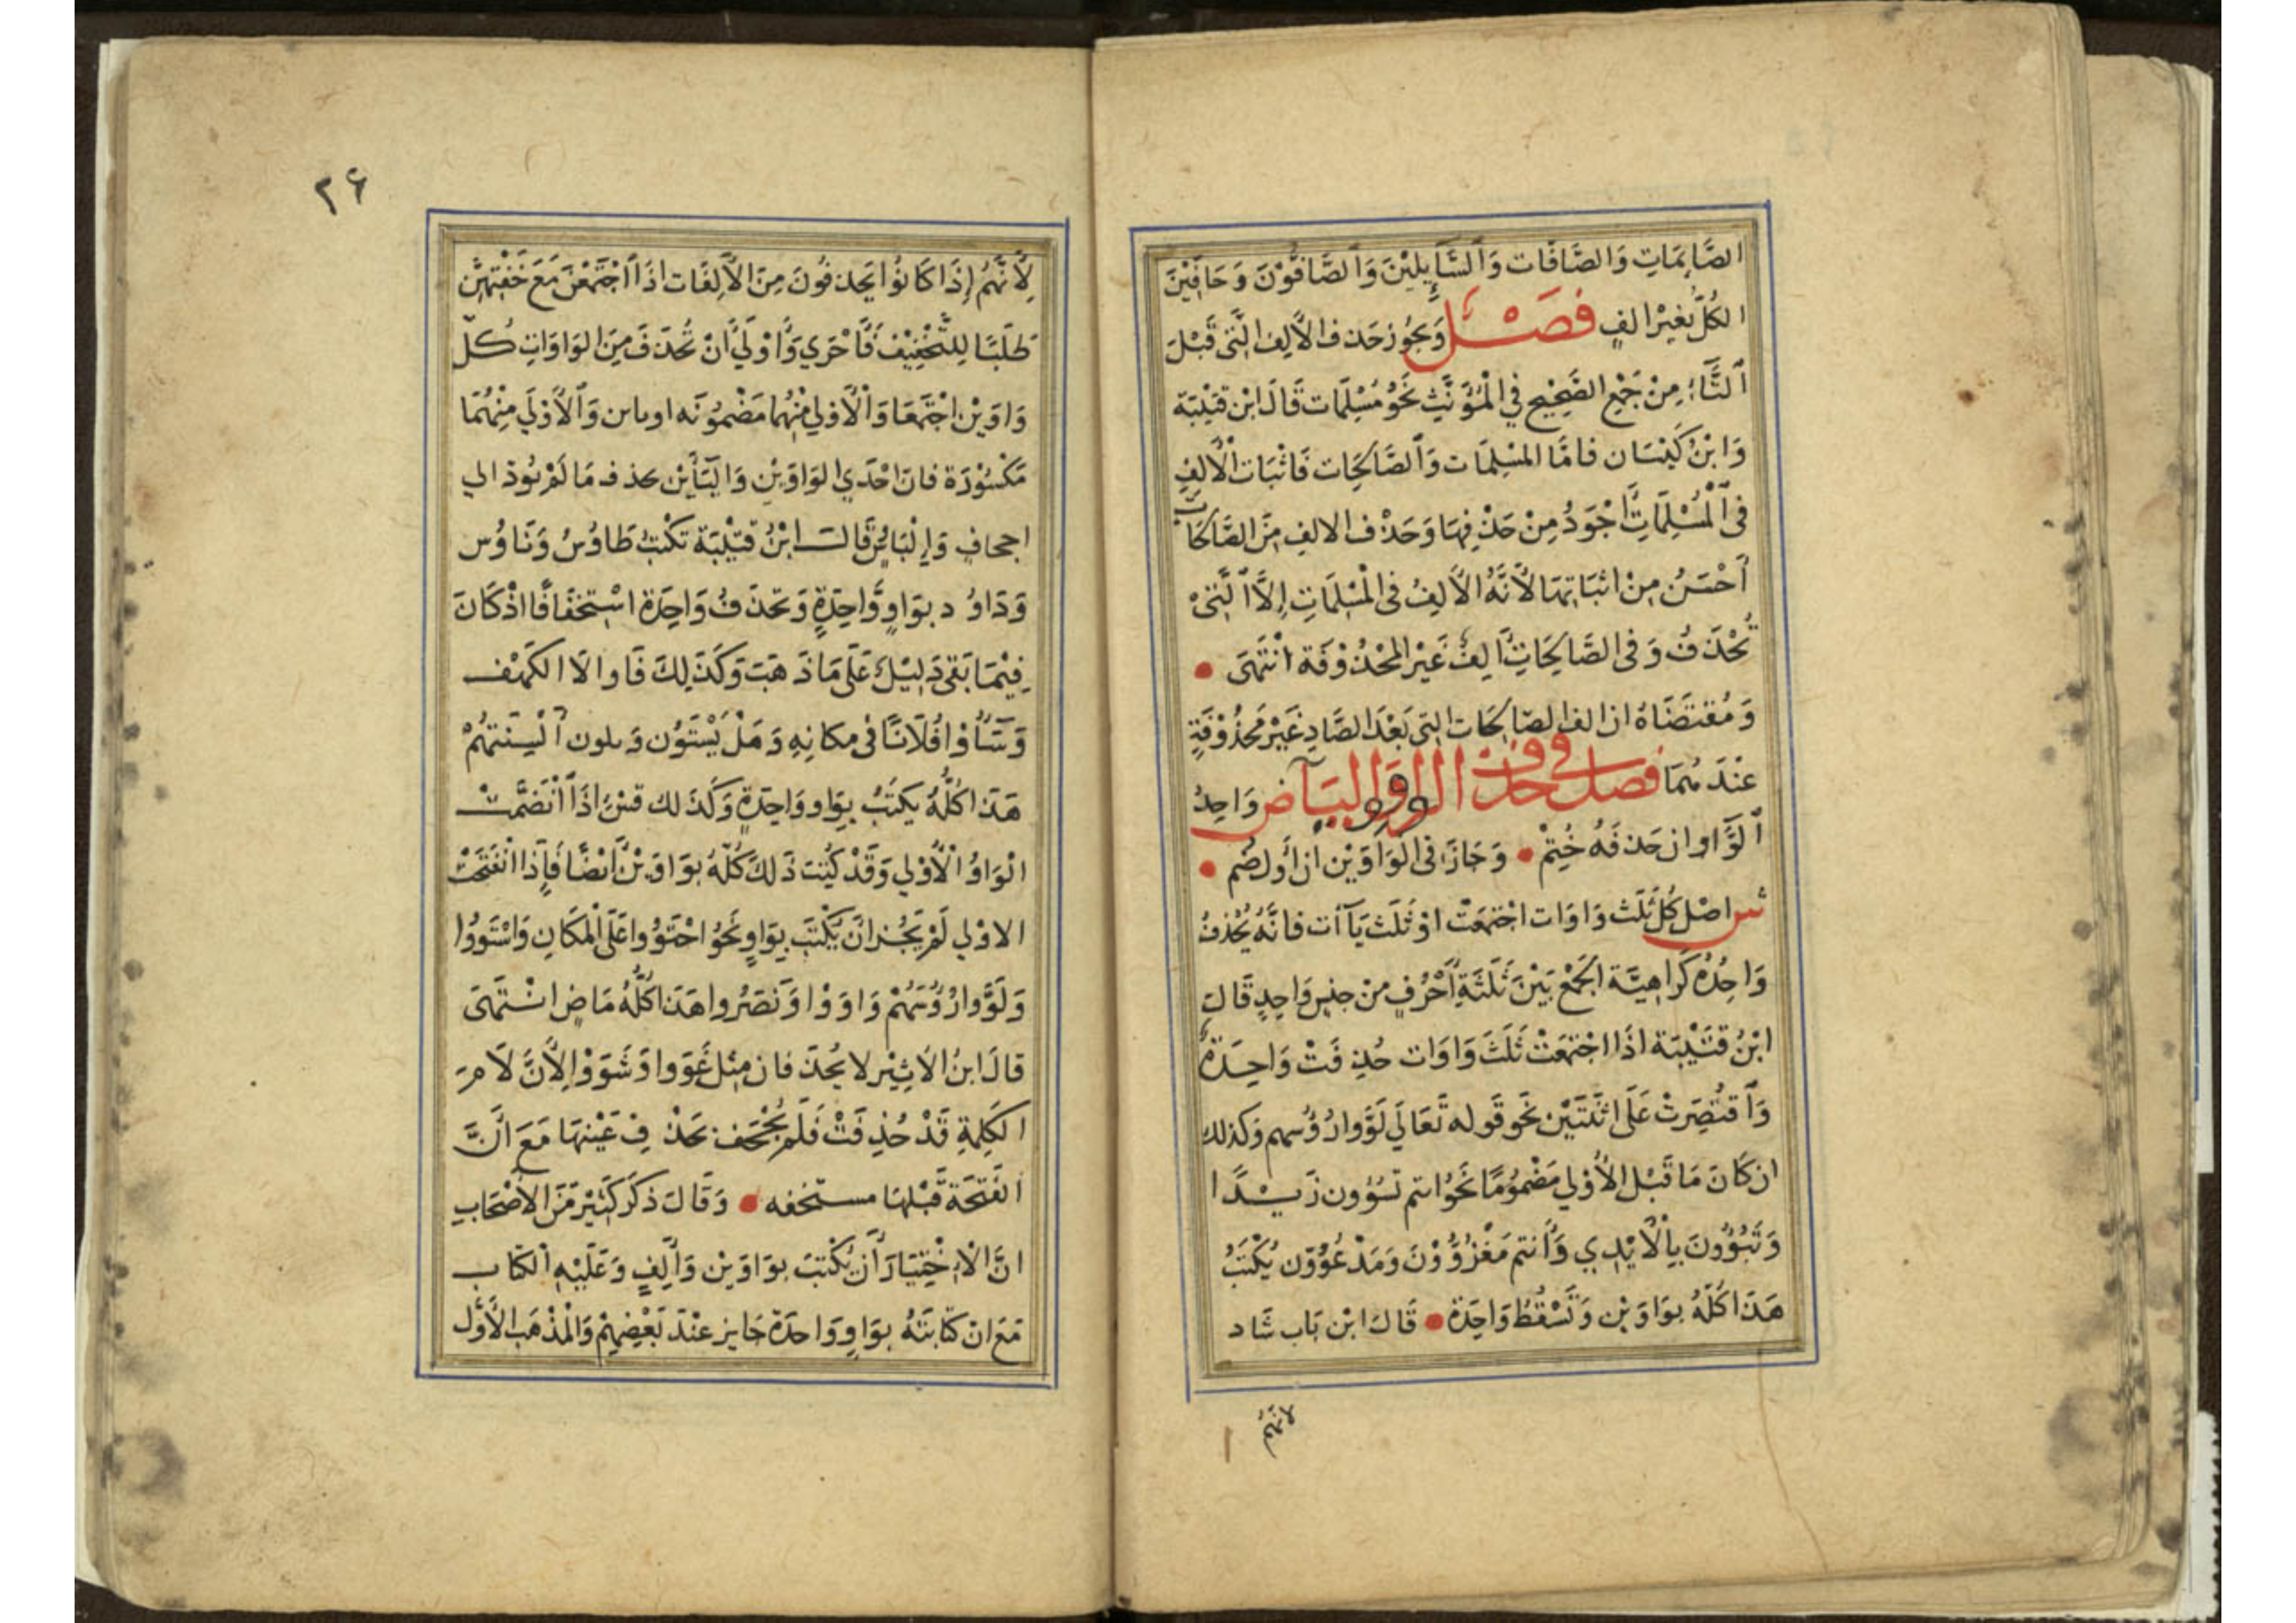 الصَّايِمَاتِ وَالصَّافَّات وَالسَّآيِلِيْنَ وَالصَّافُّوْنَ وَحَافِّيْنَ
الكُلُّ بغَيْرِ الفٍ فَصْل وَيَجُوز حَذف الأَلِف الَّتِى قَبْلَ
التَّاءِ مِنْ جَمْعِ الصَّحِيْحِ فِي الْمُؤَنَّثِ نَحْوُ مُسْلِمَات قَالَ ابْن قتَيْبَة
وَابْنُ كَيْسَان فامَّا المسْلِمَات وَالصَّالِحَات فَاثْبَات الْأَلِفِ
فى الْمُسْلِمَاتِ أَجْوَدُ مِنْ حَذْفِهَا وَحَذْف الالفِ مِنَ الصَّالحَاتِ
أَحْسَنُ مِنْ اثبَاتِهَا لأَنَّهُ الأَلِفُ فى الْمسْلِمَاتِ إِلَّا الَّتِىْ
تُحْذَفُ وَفى الصَّالِحَاتِ أَلِفٌ غَيْر المحْذُوْفَة انْتَهَى
وَمُقتَضَاهُ ان الف الصّالِحَات التِى بَعْدَ الصَّادِ غَيْرَ مَحْذُوْفَةٍ
عنْدَ هُمَا فصل فى حذف الواو واليآ ض وَاحِدُ
الْوَاو ان حَذفَهُ حُتِمْ وَجَازَ فى الوَاوَيْن ان أول ضُم
ش اصْل كُل ثَلَث وَاوَات اجْتمَعَتْ اوْ ثَلَث يَآآت فانَّهُ يُحْذفُ
وَاحِدُهُ كَرَاهِيَّة الجَمْعِ بَيْنَ ثَلَثَةِ أَحْرُفٍ منْ جنسٍ وَاحِدٍ قَالَ
ابْنُ قتَيْبَة اذَا اجْتمَعَتْ ثَلَثَ وَاوَات حُذِفَتْ وَاحِدَةٌ
وَاقتُصِرَتْ عَلَى اثنَتَيْن نَحْو قَوله تَعَالَى لَوَّوا رُؤُسهم وَكذلك
ان كَانَ مَا قَبْل الأُوْلي مَضْمُومًا نَحْوُ انتم تسُوْون زَيْدًا
وَتَبُوْؤُونَ بِالأَيْدِي وَأَنتم مَغْزُوُّوْنَ وَمَدْعُوُّوْن يُكْتَبُ
هَذَا كُلّهُ بوَاوَيْن وَتَسْقُطُ وَاحِدَة قَالَ ابْن بَاب شَاد
لانهم
٢٦
لِأَنَّهُمْ إِذَا كَانُوْا يَحذفُونَ مِنَ الأَلِفَات اذَا اجْتَمَعْنَ مَعَ خَفْتِهِنَّ
طَلَبًا لِلتَّخْفِيْف فَأَحْرَي وَأَوْلَي أَنْ تُحْذَفَ مِنَ الوَاوَاتِ كُلّ
وَاوَيْن اجْتَمَعَا وَالأُوْلي مِنْهُمَا مَضْمُوْنَه اوياين وَالأُوْلَي مِنْهُمَا
مَكْسُوْرَة فان احْدَي الوَاوَيْنِ وَاليَائَيْن تحذف مَا لَمْ يُوذ الي
اجحافٍ وَإِلْبَاسٍ قَالَ ابْنُ قتَيْبَة تكْتبُ طَاوُسُ وَنَاوُس
وَدَاوُد بوَاوٍ وَاحِدَةٍ وَتحذفُ وَاحِدَة اسْتِخفَافًا اذْ كَانَ
فِيْمَا بَقىَ دَلِيْلٌ عَلَى مَا ذَهبَتَ وَكَذَلِكَ فَاوا لَا الكَهْف
وَسَآؤُا فُلَانًا فى مكانِهِ وَهَلْ يَسْتَوُن وَيلون أَلْسِنَتَهُمْ
هَذَا كُلُّهُ يكتبُ بوَاو وَاحِدَةٍ وَكَذَلك اذَا انْضَمَّتْ
الْوَاوُ الأُوْلي وَقَدْ كُتِبَ ذَلكَ كُلّهُ بوَاوَيْن أيْضًا فَإِذَا انْفَتَحَتْ
الاوْلي لَمْ يَجُزْ انْ يُكْتَبَ بوَاوٍ نَحْوُ احْتَوُوا عَلَى الْمَكَانِ وَاسْتَووُا
وَلَوَّوا رُؤسَهُمْ وَاوَوْا وَنَصَرُوا هَذَا كُلُّهُ مَاضٍ انْتَهَى
قالَ ابنُ الأَثِيْر لا يُحذَفان مِثل غَوَوا وَشَوَوْا لِأَنَّ لَامَ
الكَلِمَةِ قَدْ حُذِفَتْ فَلَمْ يُجْحَف بحَذْفِ عَيْنهَا مَعَ أَنَّ
الفَتْحَة قَبْلهَا مستخفه وَقَالَ ذكَرَ كَثِيْر مِنَ الأَصْحَابِ
انَّ الْاخْتِيَارَ أَنْ يُكْتبَ بوَاوَيْن وَأَلِفٍ وَعَلَيْهِ الْكتَاب
مَعَ انْ كتَابَتَهُ بوَاوٍ وَاحدَة جَايز عنْدَ بَعْضِهِمْ وَالْمَذهَب الأَوَّل